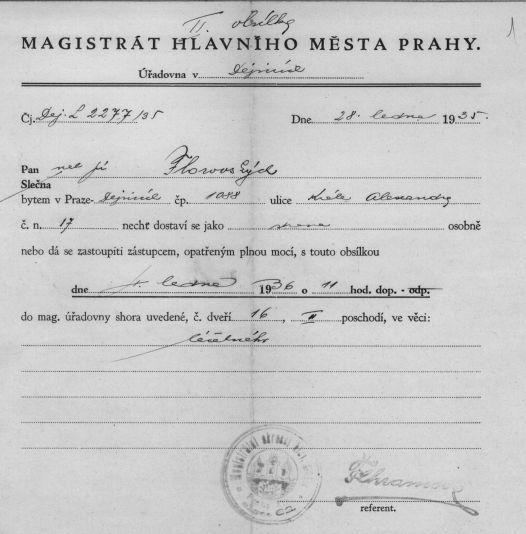 II. obsílka
1
MAGISTRÁT HLAVNÍHO MĚSTA PRAHY.
Úřadovna v Dejvicích
Čj. Dej. L 2277/35 Dne 28. ledna 1935.
Pan
Slečna
bytem v Praze- Dejvicích čp. 1088 ulice Krále Alexandra
č. n. 17 nechť dostaví se jako strana osobně
nebo dá se zastoupiti zástupcem, opatřeným plnou mocí, s touto obsílkou
dne ledna 1936 o 11 hod. dop. - odp.
do mag. úřadovny shora uvedené, č. dveří 16, II poschodí, ve věci:
referent.